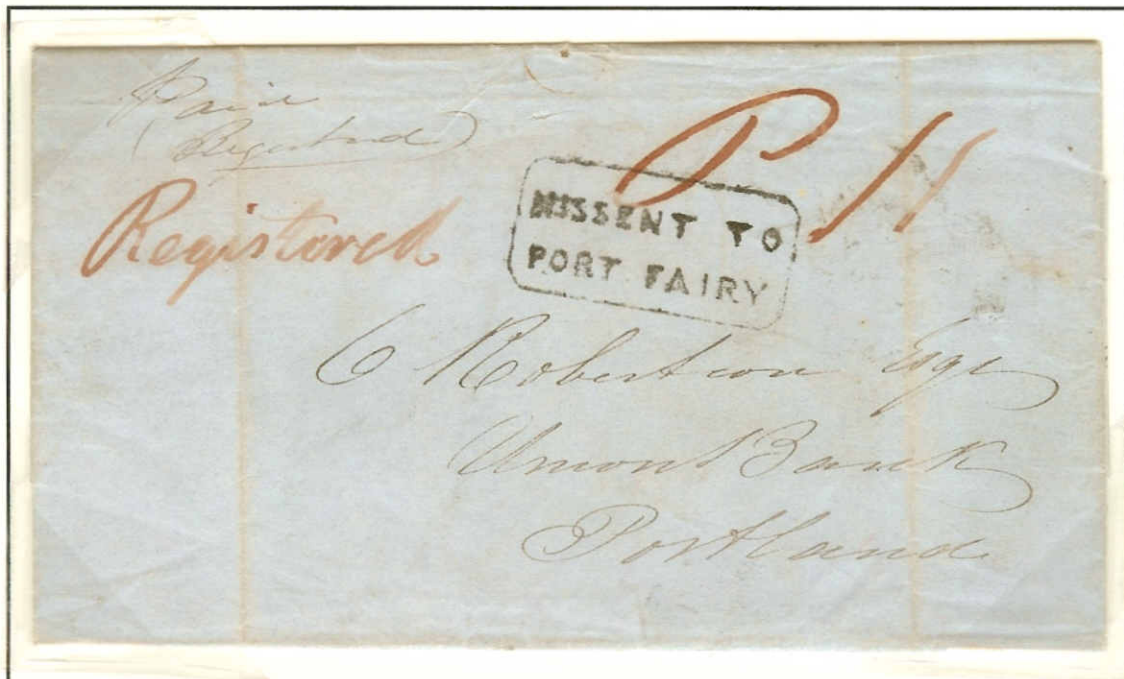 Paid
Registered
P 11
Registered
MISSENT TO
PORT FAIRY
C Robertson Esqe
Union Bank
Portland